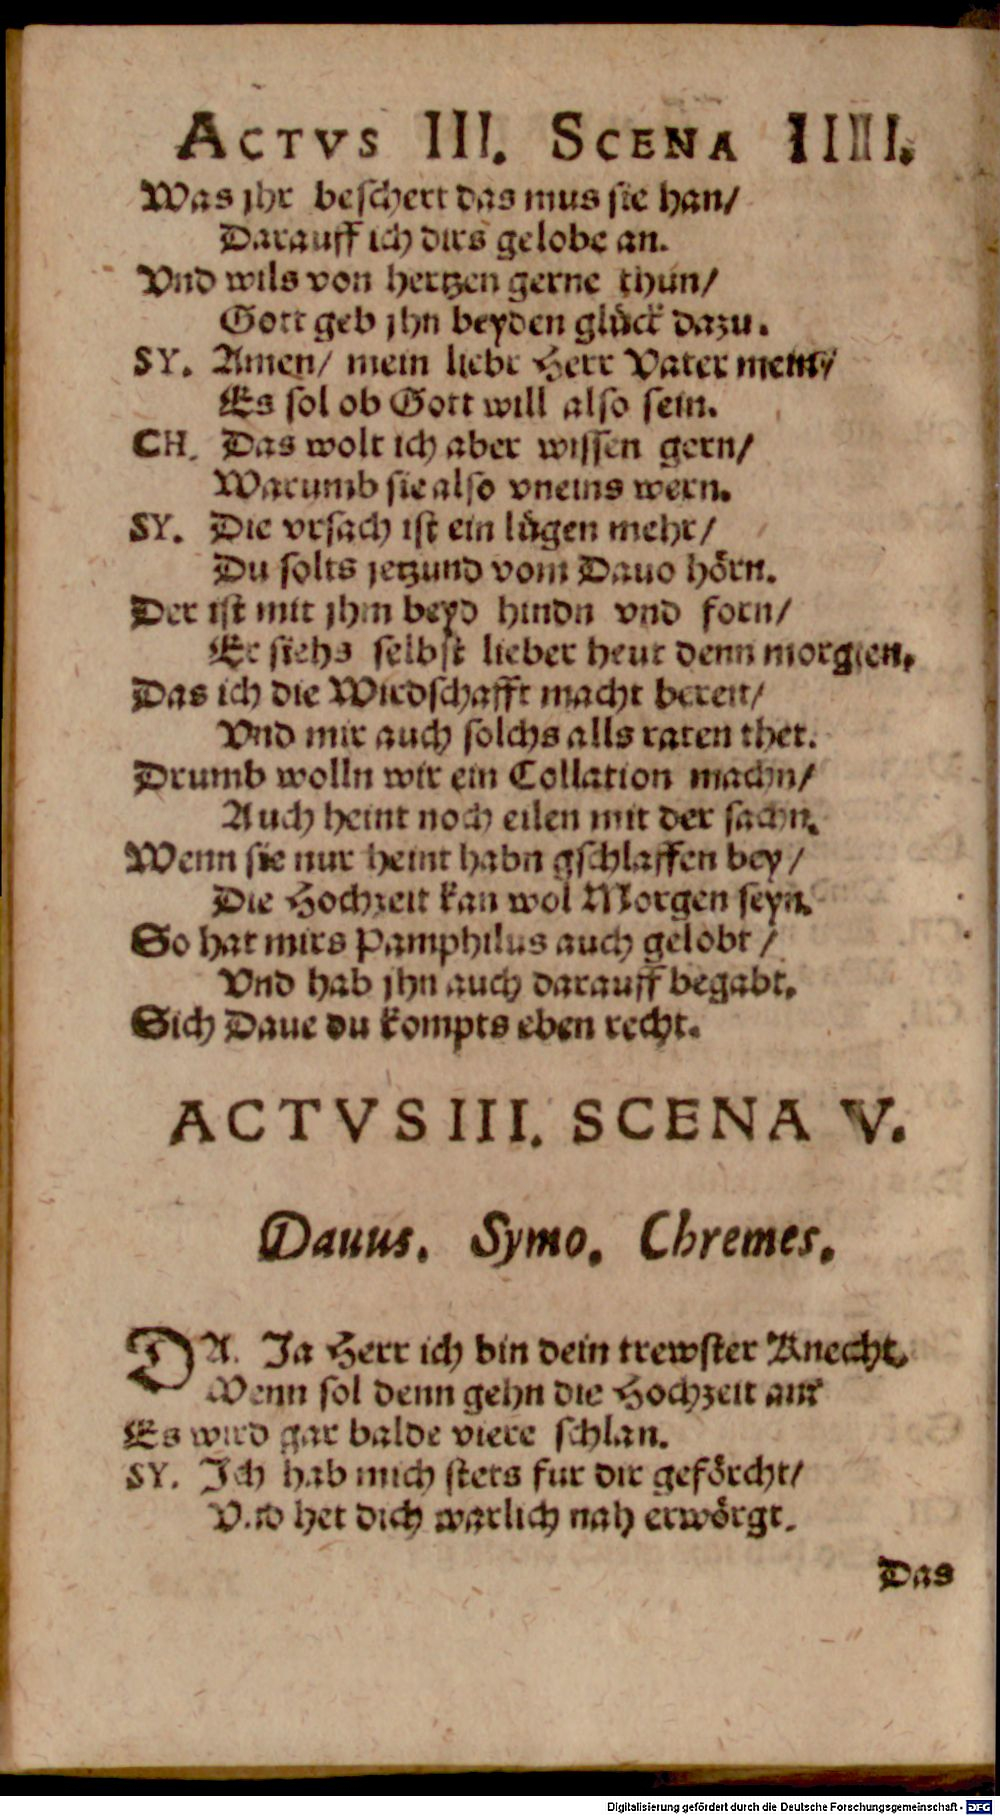 ACTVS III. SCENA IIII.
Was jhr beschert das mus sie han/
Darauff ich dirs gelobe an.
Vnd wils von hertzen gerne thun/
Gott geb jhn beyden glück dazu.
SY. Amen/ mein liebr Herr Vater mein/
Es sol ob Gott will also sein.
CH. Das wolt ich aber wissen gern/
Warumb sie also vneins wern.
SY. Die vrsach ist ein lügen mehr/
Du solts jetzund vom Dauo hörn.
Der ist mit jhm beyd hindn vnd forn/
Er siehs selbst lieber heut denn morgien.
Das ich die Wirdschafft macht bereit/
Vnd mir auch solchs alls raten thet.
Drumb wolln wir ein Collation machn/
Auch heint noch eilen mit der sachn.
Wenn sie nur heint habn gschlaffen bey/
Die Hochzeit kan wol Morgen seyn.
So hat mirs Pamphilus auch gelobt /
Vnd hab jhn auch darauff begabt.
Sich Daue du kompts eben recht.
ACTVS III. SCENA V.
Dauus. Symo. Chremes.
DA. Ja Herr ich bin dein trewster Knecht.
Wenn sol denn gehn die Hochzeit an?
Es wird gar balde viere schlan.
SY. Ich hab mich stets fur dir geförcht/
Vnd het dich warlich nah erwörgt.
Das
Digitalisierung gefördert durch die Deutsche Forschungsgemeinschaft - DFG